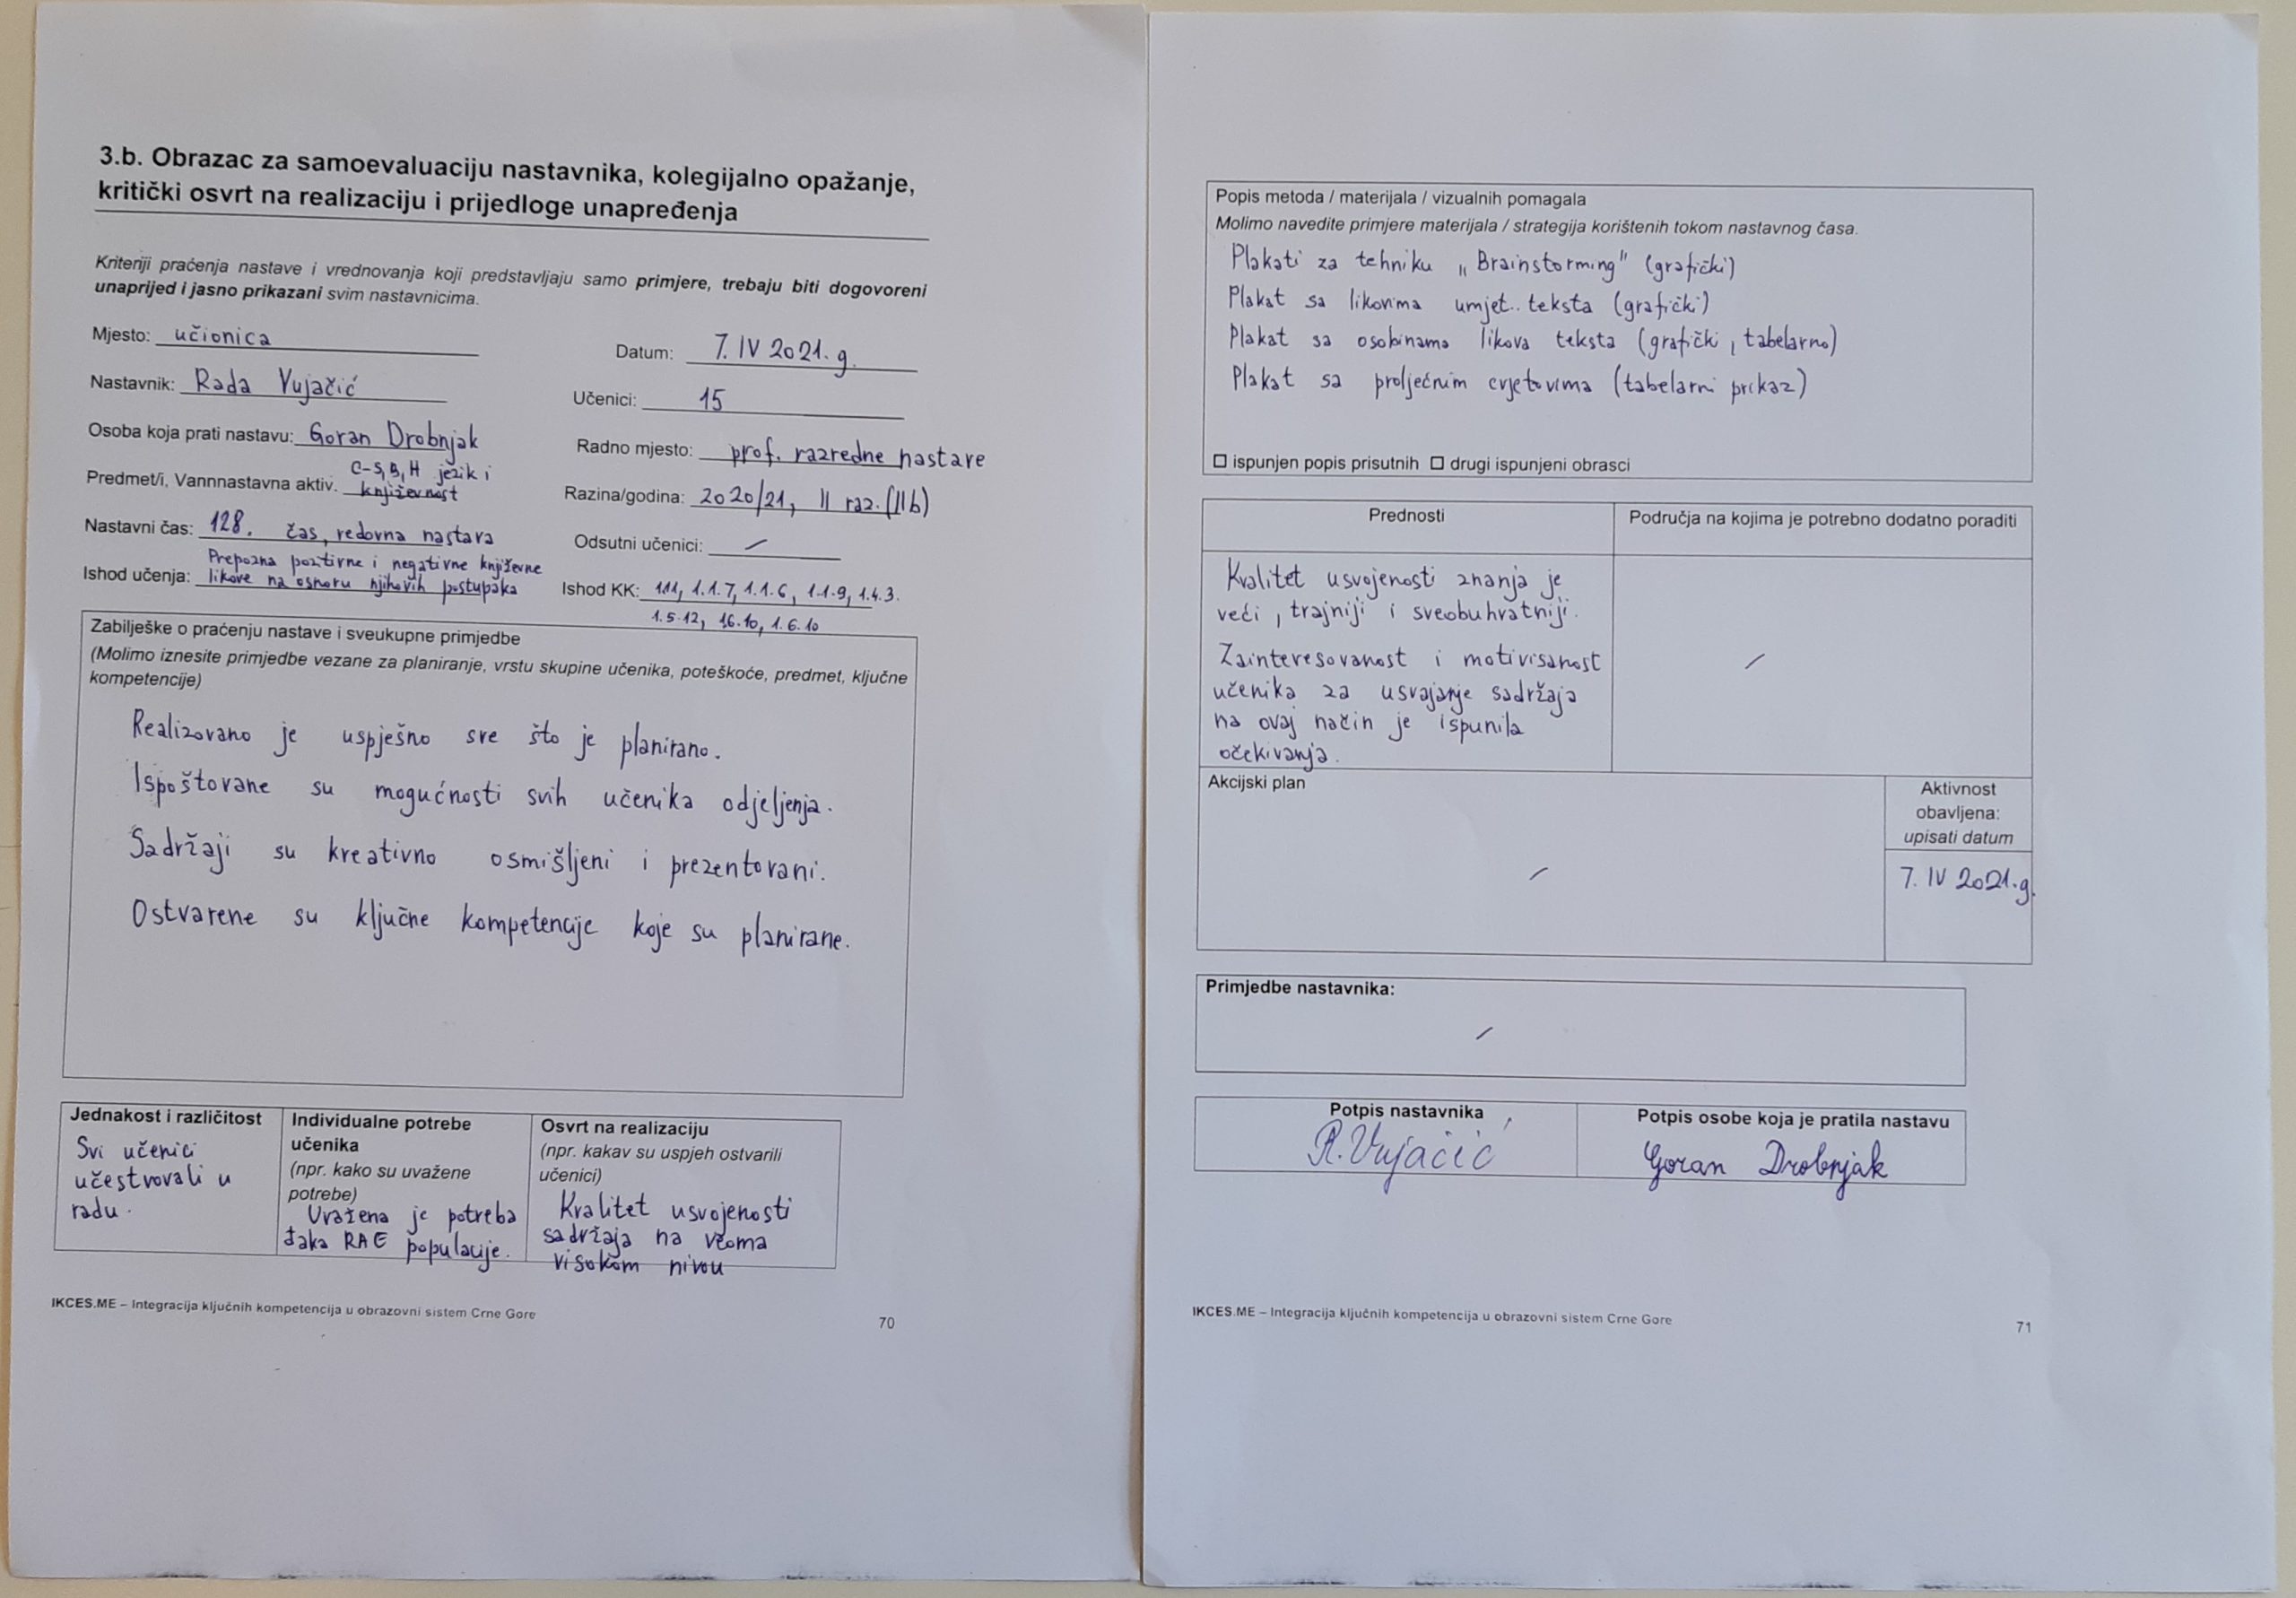 3.b. Obrazac za samoevaluaciju nastavnika, kolegijalno opažanje,
kritički osvrt na realizaciju i prijedloge unapređenja
Kriteriji praćenja nastave i vrednovanja koji predstavljaju samo primjere, trebaju biti dogovoreni
unaprijed i jasno prikazani svim nastavnicima.
Mjesto: učionica
Datum: 7. IV 2021. g.
Nastavnik: Rada Vujačić
Učenici: 15
Osoba koja prati nastavu: Goran Drobnjak
Radno mjesto: prof. razredne nastave
C-S, B, H jezik i
Predmet/i, Vannnastavna aktiv. književnost
Razina/godina: 2020/21, II raz. (IIb)
Nastavni čas: 128. čas, redovna nastava
Odsutni učenici: /
Prepozna pozitivne i negativne književne
Ishod učenja: likove na osnovu njihovih postupaka
Ishod KK: 1.1.1, 1.1.7, 1.1.6, 1.1.9, 1.4.3.
1.5.12, 1.6.10, 1.6.10
Zabilješke o praćenju nastave i sveukupne primjedbe
(Molimo iznesite primjedbe vezane za planiranje, vrstu skupine učenika, poteškoće, predmet, ključne
kompetencije)
Realizovano je uspješno sve što je planirano.
Ispoštovane su mogućnosti svih učenika odjeljenja.
Sadržaji su kreativno osmišljeni i prezentovani.
Ostvarene su ključne kompetencije koje su planirane.
Jednakost i različitost
Svi učenici
učestvovali u
radu.
Individualne potrebe
učenika
(npr. kako su uvažene
potrebe)
Uvažena je potreba
đaka RAE populacije.
Osvrt na realizaciju
(npr. kakav su uspjeh ostvarili
učenici)
Kvalitet usvojenosti
sadržaja na veoma
visokom nivou
IKCES.ME – Integracija ključnih kompetencija u obrazovni sistem Crne Gore
70
Popis metoda / materijala / vizualnih pomagala
Molimo navedite primjere materijala / strategija korištenih tokom nastavnog časa.
Plakati za tehniku „Brainstorming" (grafički)
Plakat sa likovima umjet. teksta (grafički)
Plakat sa osobinama likova teksta (grafički, tabelarno)
Plakat sa proljećnim cvjetovima (tabelarni prikaz)
☐ ispunjen popis prisutnih ☐ drugi ispunjeni obrasci
Prednosti
Kvalitet usvojenosti znanja je
veći, trajniji i sveobuhvatniji.
Zainteresovanost i motivisanost
učenika za usvajanje sadržaja
na ovaj način je ispunila
očekivanja.
Područja na kojima je potrebno dodatno poraditi
/
Akcijski plan
/
Aktivnost
obavljena:
upisati datum
7. IV 2021. g.
Primjedbe nastavnika:
/
Potpis nastavnika
R. Vujačić
Potpis osobe koja je pratila nastavu
Goran Drobnjak
IKCES.ME – Integracija ključnih kompetencija u obrazovni sistem Crne Gore
71